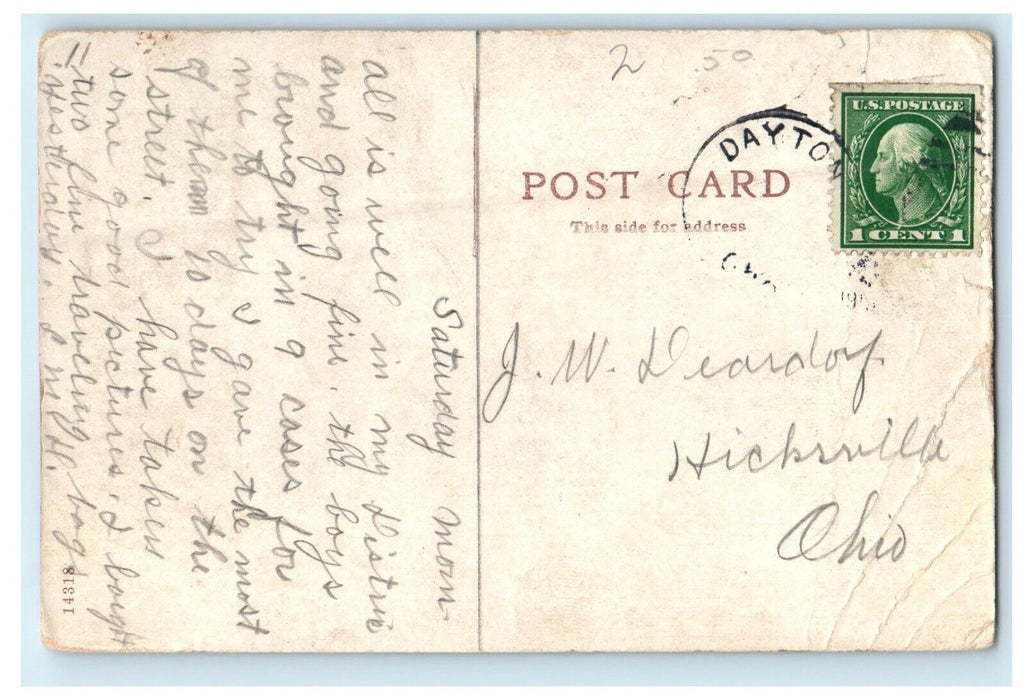 2 .50
U.S. POSTAGE
1 CENT 1
DAYTON
POST CARD
This side for address
J. W. Deardorf
Hicksville
Ohio
Saturday morn.
all is well in my Distric
and going fine. the boys
brought in 9 cases for
me to try I gave the most
of them 10 days on the
street. I have taken
some good pictures. I bought
two fine traveling bags
yesterday.
14318